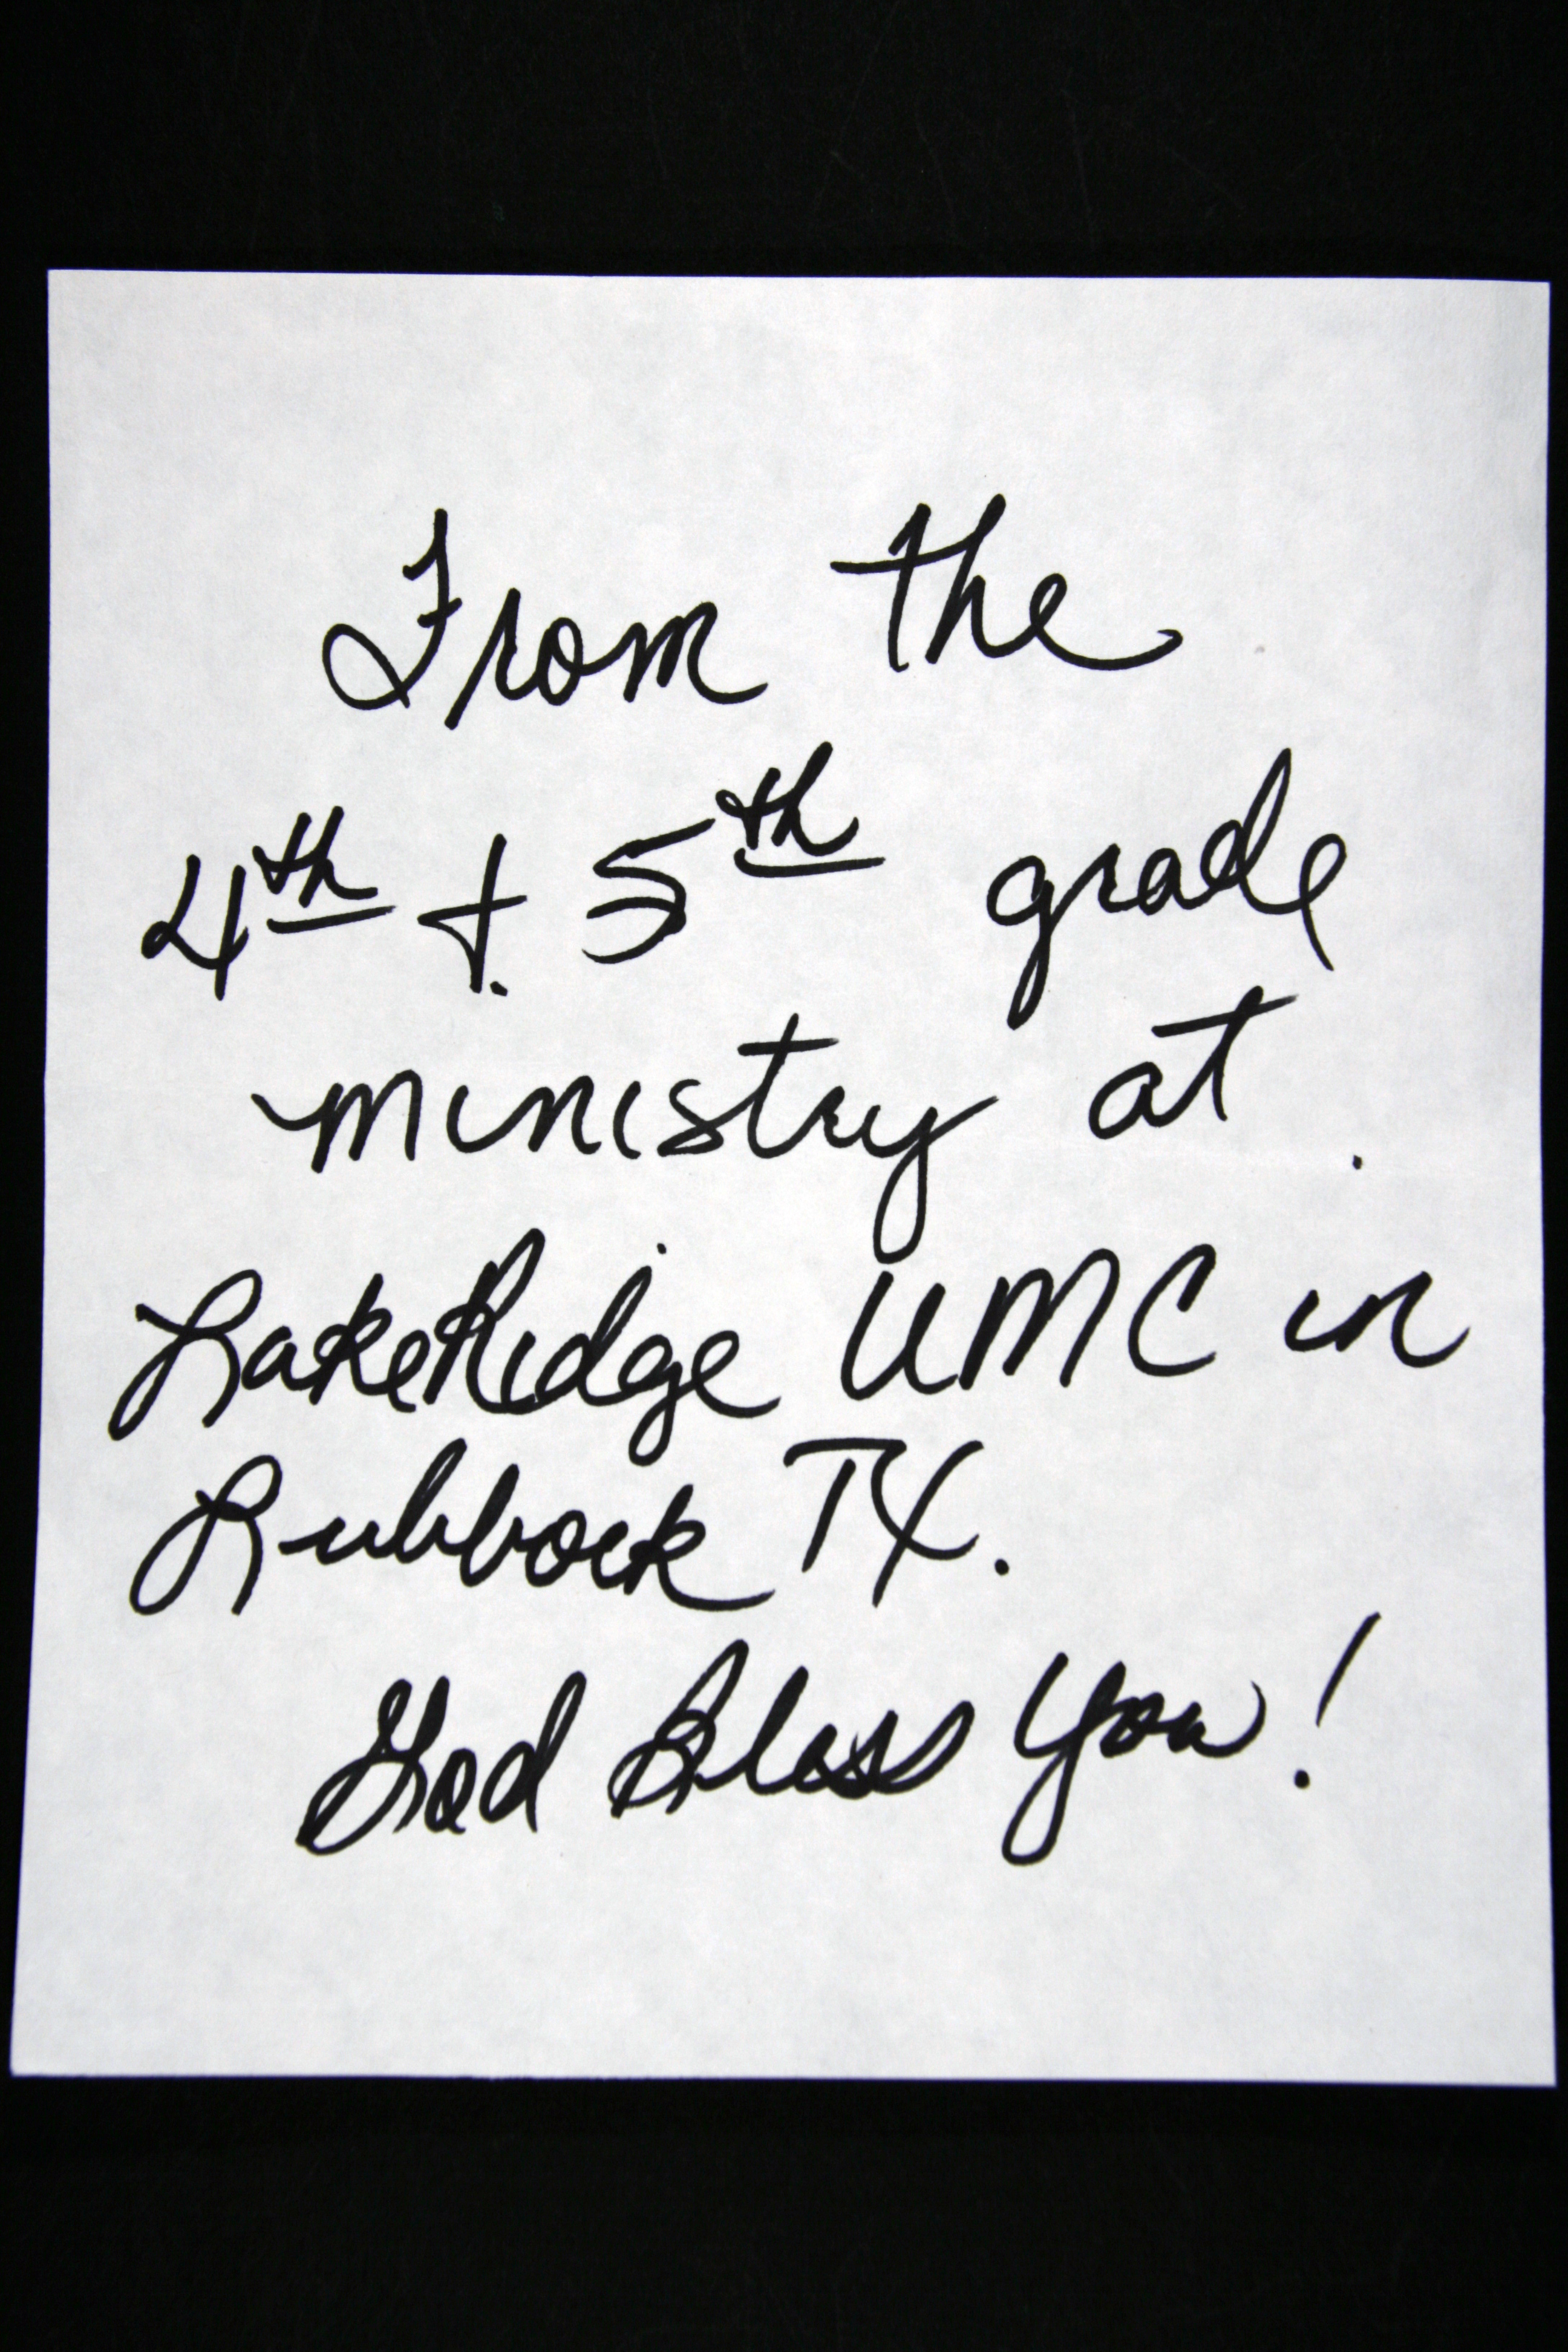 From the
4th & 5th grade
ministry at
LakeRidge UMC in
Lubbock TX.
God Bless You!